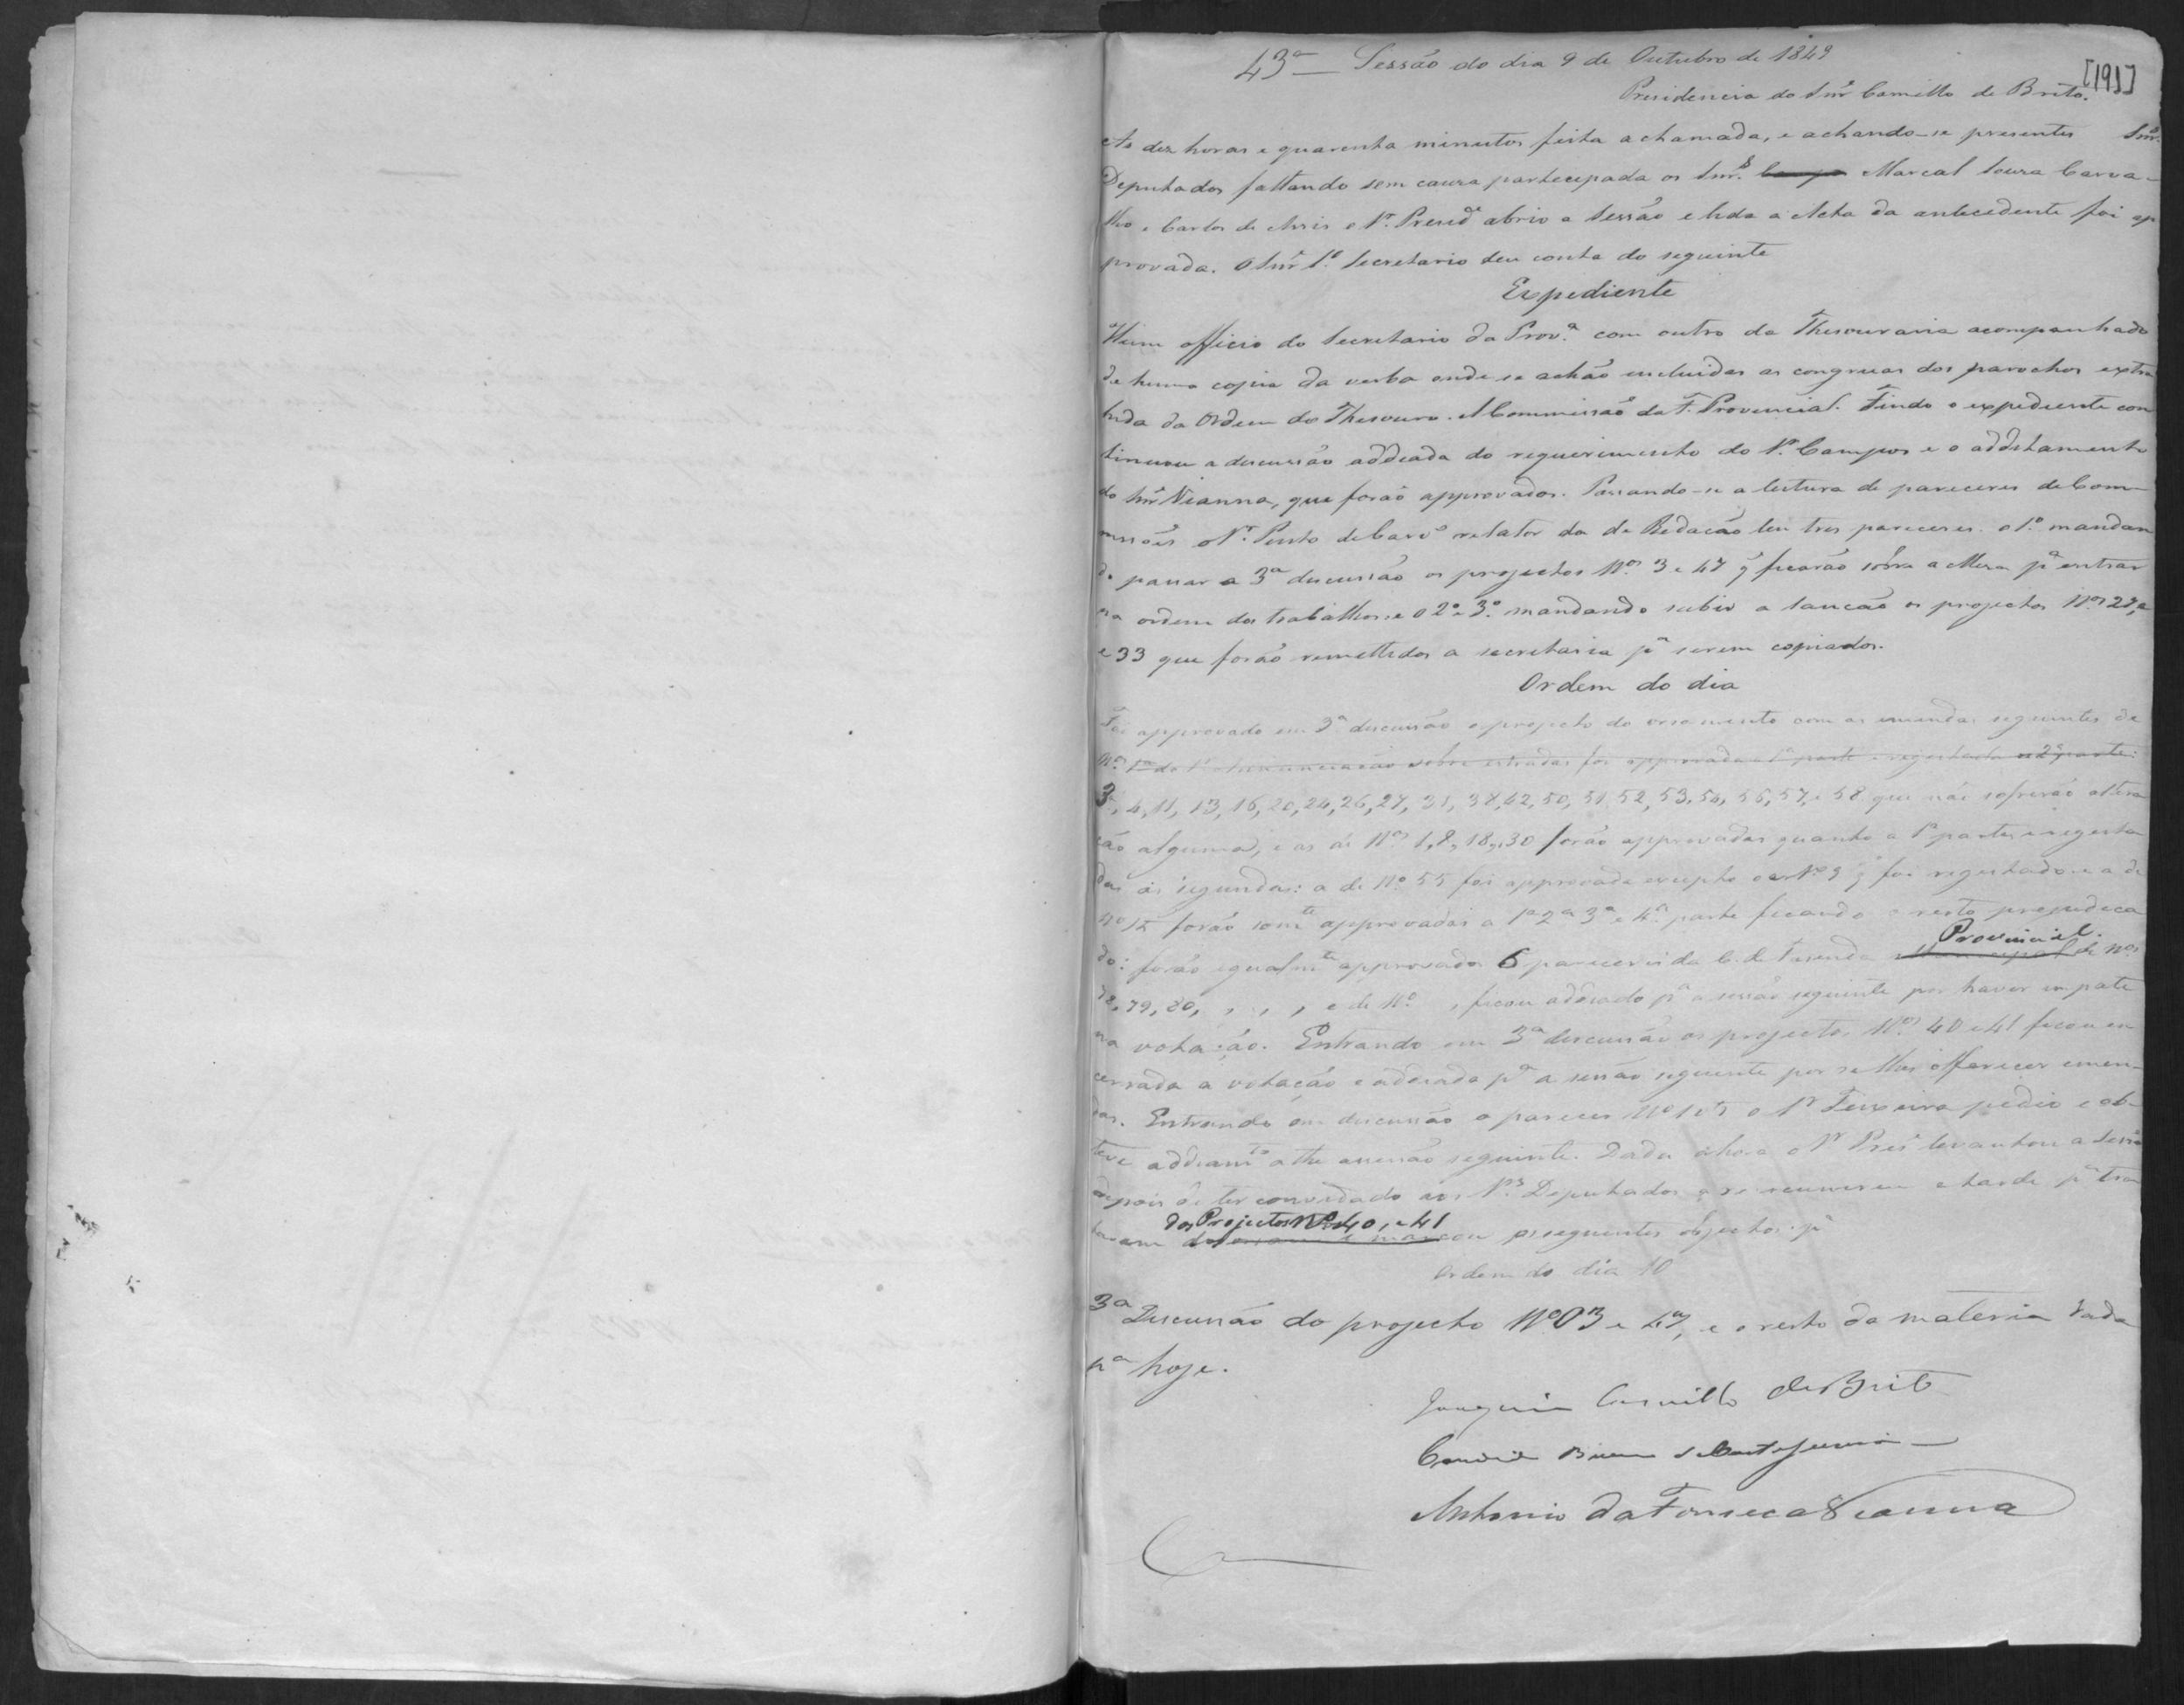 43ª — Sessão do dia 9 de Outubro de 1849
[191]
Presidencia do Snr Camillo de Brito.
As dez horas e quarenta minutos feita a chamada, e achando-se presentes Snrs
Deputados faltando sem causa partecipada os Snrs. Marcal Souza Carva-
lho e Carlos de Assis o Sr. Presidᵉ abrio a Sessão e lida a Acta da antecedente foi ap
provada. O Snr 1º Secretario deu conta do seguinte
Expediente
Hum officio do Secretario da Provª com outro da Thesouraria acompanhado
de huma copia da verba onde se achão encluidas as congruas dos parochos extra
hida da Ordem do Thesouro. A Commissão da F. Provencial. Findo o expediente con
tinuou a discussão addeada do requerimento do Sr. Campos e o additamento
do Snr Vianna, que forão approvados. Passando-se a leitura de pareceres de Com-
missões o Sr. Pinto de Carvº relator da de Redacão leu tres pareceres. o 1º mandan
do passar a 3ª discussão os projectos Nos. 3 e 47 q̃ ficarão sobre a Mesa pª entrar
na ordem dos trabalhos e o 2º e 3º mandando subir a Sancão os projectos Nos 27,
e 33 que forão remettidos a secretaria pª serem copiados.
Ordem do dia
Foi approvado em 3ª discussão o projecto do orsamento com as emendas seguintes de
Nos. sobre estradas foi approvada a 1ª parte e regeitada a 2ª parte:
3, 4, 11, 13, 16, 20, 24, 26, 27, 31, 38, 42, 50, 51, 52, 53, 54, 56, 57, e 58 que não sofrerão altera
cão alguma, e as de Nos 1, 8, 18, e 30 forão approvadas quanto a 1ª parte, e regeita
das as segundas: a de Nº 55 foi approvada excepto o q̃ foi regeitado e a de
forão somte approvadas a 1ª 2ª 3ª e 4ª parte ficando o resto prejudica
do: forão igualmte approvados 6 pareceres da C. de Fasenda Provincial. de Nos
78, 79, 80, , , , , e de Nº , ficou addeado pª a sessão seguinte por haver empate
na votacão. Entrando em 3ª discussão os projectos Nos 40 e 41 ficou en
cerrada a votação e addeada pª a sessão seguinte por se lhes offerecer emen-
das. Entrando em discussão o parecer Nº o Sr Teixeira pedio e ob-
teve addeamto athe a sessão seguinte. Dada a hora o Sr Presᵉ levantou a Sessão
depois de ter convidado aos Srs Deputados a se reunirem a tarde pª tra
tarem dos Projectos Nos 40, e 41 os seguintes objectos pª
Ordem do dia 10
3ª Discussão do projecto Nº 03 e 47, e o resto da materia dada
pª hoje.
Joaquim Camillo de Brito
Antonio da Fonseca Vianna